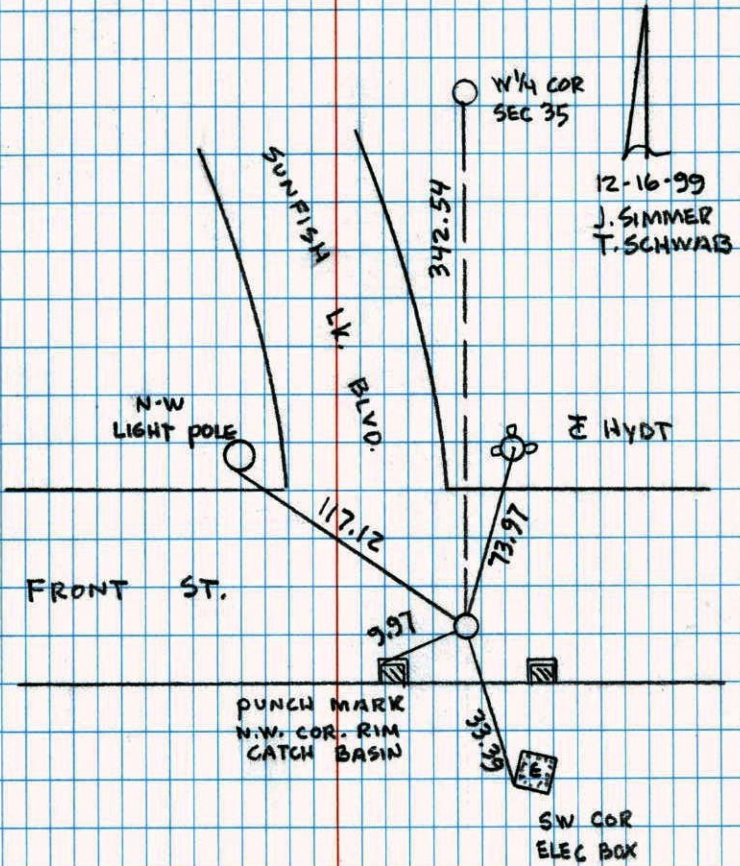 W 1/4 COR
SEC 35
12-16-99
J. SIMMER
T. SCHWAB
342.54
SUNFISH LK. BLVD.
N-W
LIGHT POLE
HYDT
117.12
73.97
FRONT ST.
9.97
PUNCH MARK
N.W. COR. RIM
CATCH BASIN
33.39
E
SW COR
ELEC BOX